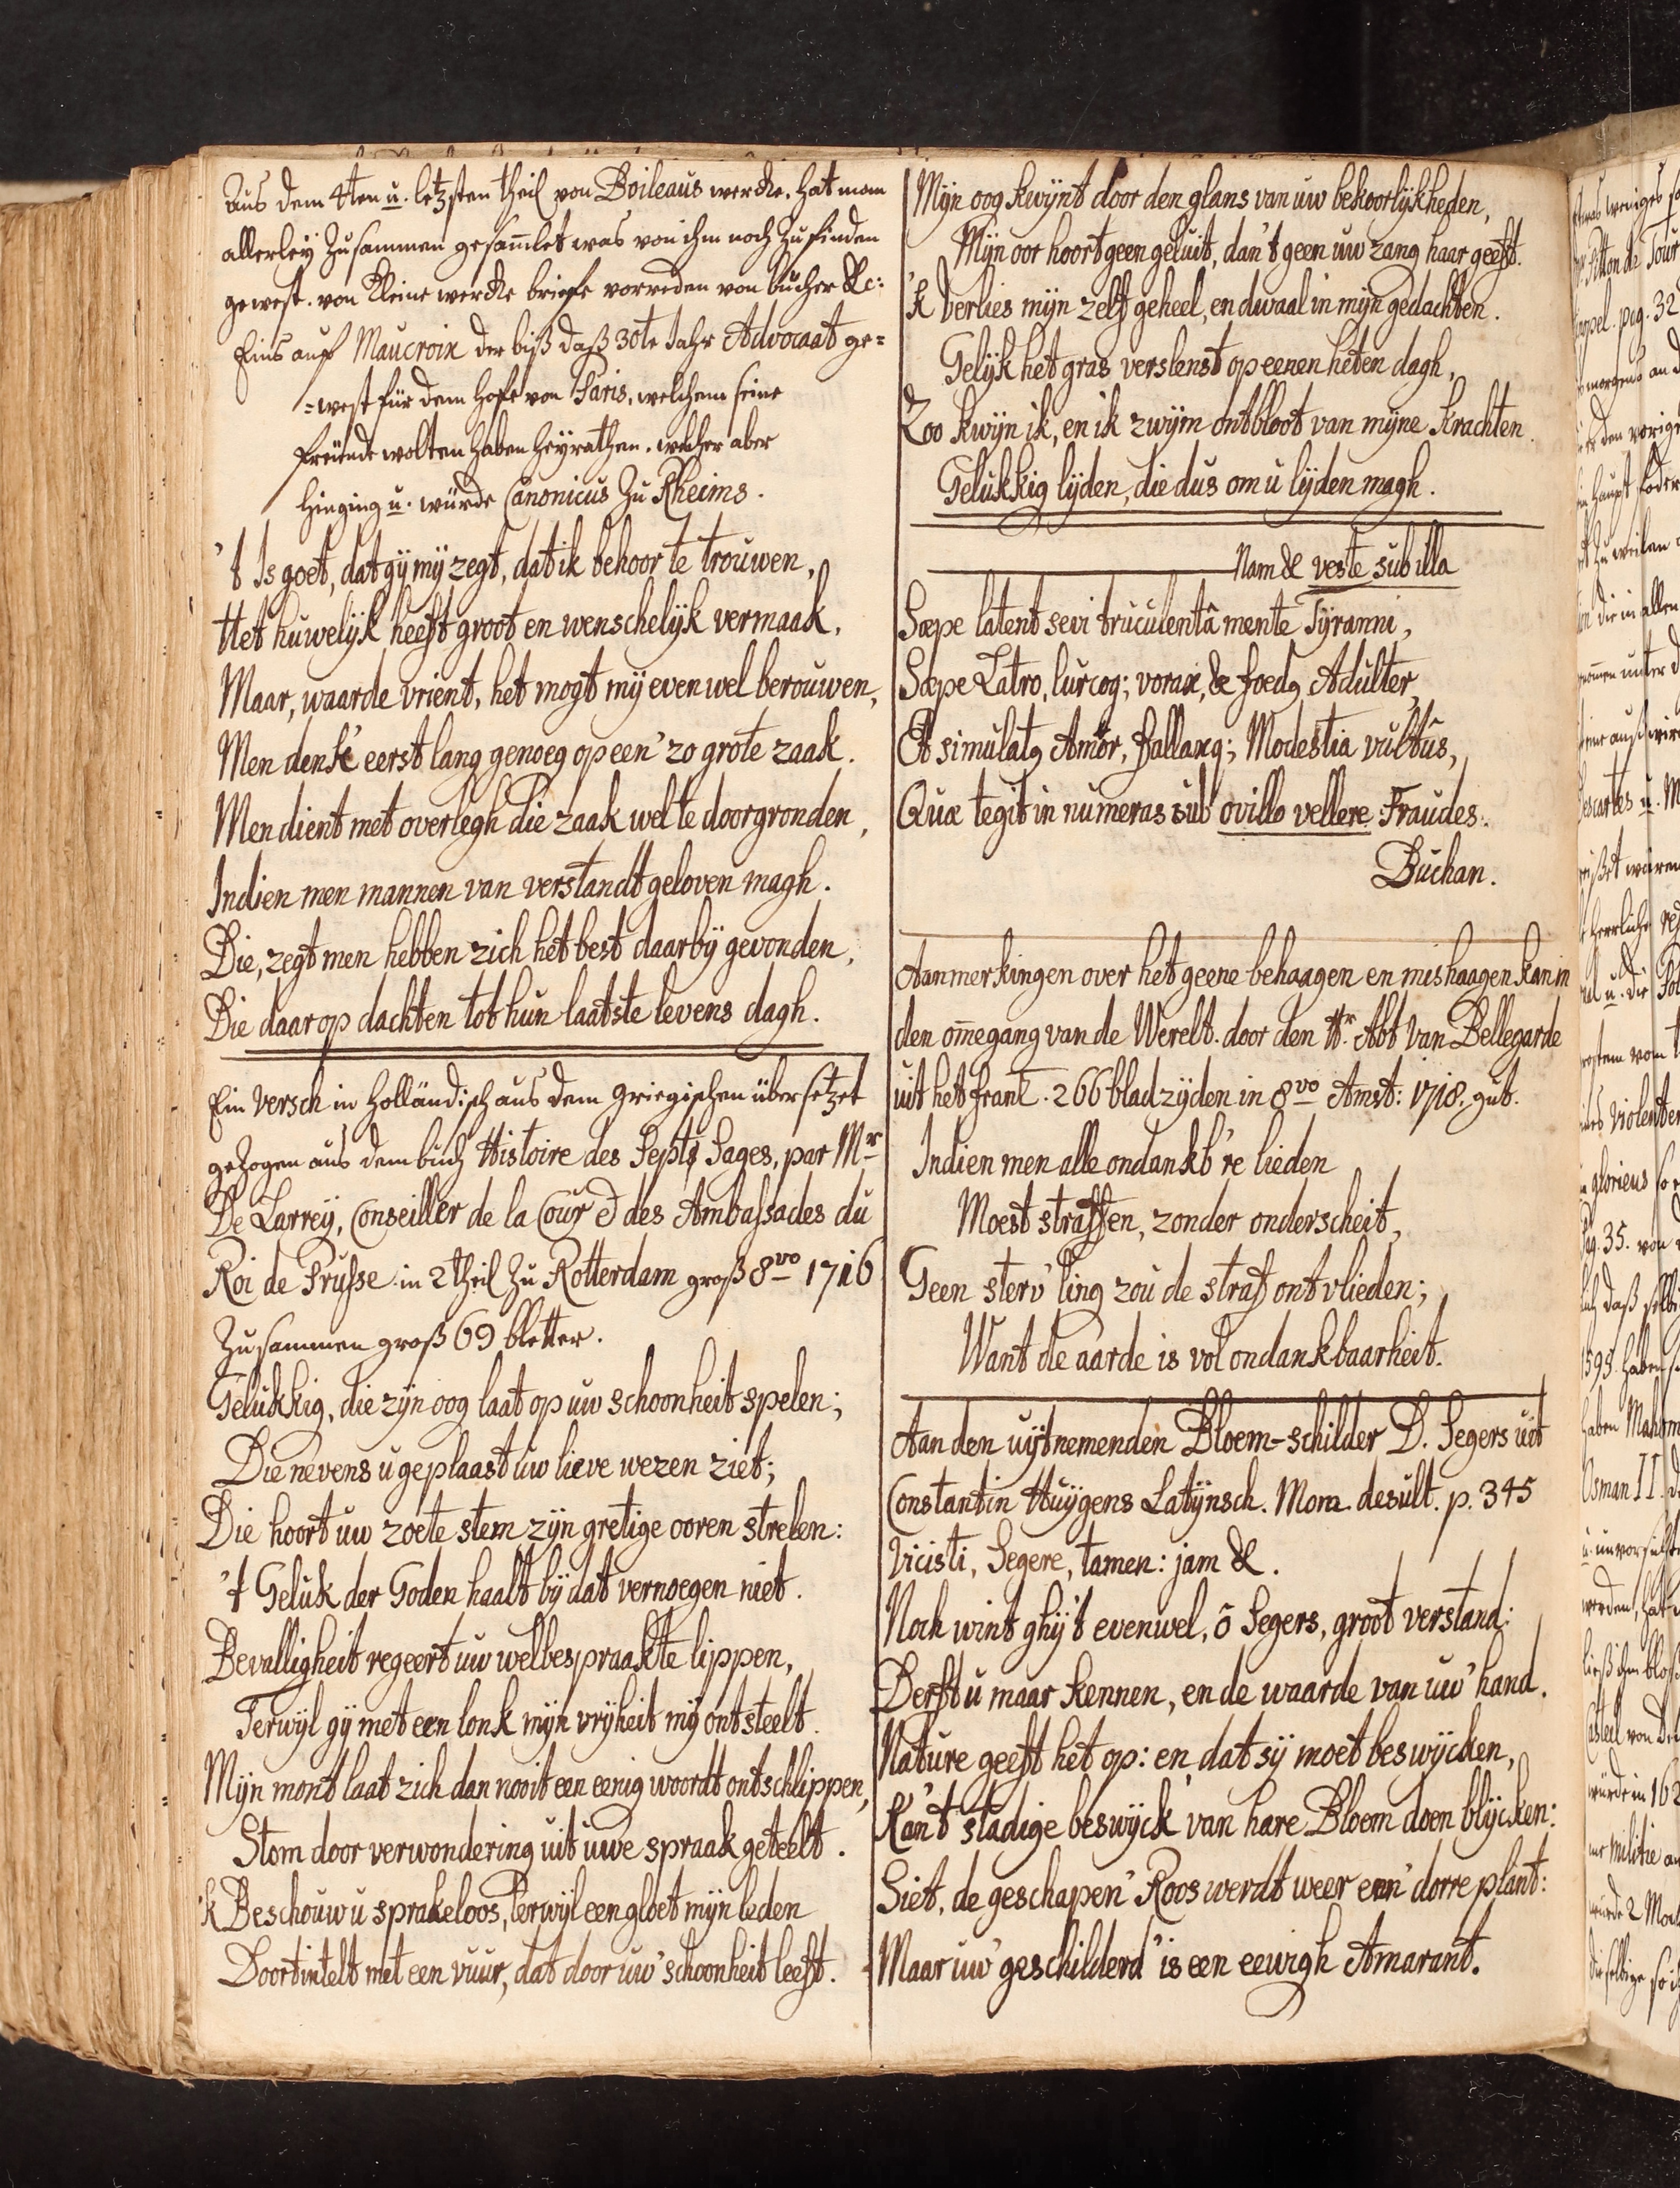 Aus dem 4ten u. letzsten theil von Boileaus wercke. hat man
allerleÿ zusammen gesam̄let was von ihm noch zu finden
gewest. von kleine wercke briefe vorreden von bucher &c:
Eins auf Maucroix der biß daß 30te Jahr Advocaat ge=
=west für dem hofe von Paris, welchem seine
freünde wolten haben heyrathen. welcher aber
hinging u. würde Canonicus zu Rheims.
't Is goet, dat gij mij zegt, dat ik behoor te trouwen,
Het huwelijk heeft groot en wenschelijk vermaak,
Maar, waarde vrient, het mogt mij evenwel berouwen,
Men denk' eerst lang genoeg op een' zo grote zaak.
Men dient met overlegh die zaak wel te doorgronden,
Indien men mannen van verstandt geloven magh.
Die, zegt men hebben zich het best daarbij gevonden,
Die daar op dachten tot hun laatste levens dagh.
Ein Versch in Holländisch aus dem griegischen übersetzet
gezogen aus dem buch Histoire des Septs Sages, par Mr
De Larreÿ, Conseiller de la Cour & des Ambassades du
Roi de Prusse in 2 theil zu Rotterdam groß 8vo 1716
Zusammen groß 69 bletter.
Gelukkig, die zijn oog laat op uw schoonheit spelen;
Die nevens u geplaast uw lieve wezen ziet;
Die hoort uw zoete stem zijn gretige ooren strelen:
't Geluk der Goden haalt bij dat vernoegen niet.
Bevalligheit regeert uw welbespraakte lippen,
Terwijl gij met een lonk mijn vrijheit mij ontsteelt.
Mijn mont laat zich dan nooit een eenig woordt ontschlippen,
Stom door verwondering uit uwe spraak geteelt.
'k Beschouw u sprakeloos, terwijl een gloet mijn leden
Doortintelt met een vuur, dat door uw' schoonheit leeft.
Mijn oog kwijnt door den glans van uw bekoorlijkheden,
Mijn oor hoort geen geluit, dan 't geen uw zang haar geeft.
'k Verlies mijn zelf geheel, en dwaal in mijn gedachten.
Gelijk het gras verslenst op eenen heten dagh,
Zoo kwijn ik, en ik zwijm ontbloot van mijne krachten.
Gelukkig lijden, die dus om u lijden magh.
Nam & veste sub illa
Sæpe latent sevi truculentâ mente Tÿranni,
Sæpe Latro, lurcoq; vorax, & foedq Adulter,
Et simulatq Amor, fallaxq; Modestia vultûs,
Quæ tegit in numeras sub ovillo vellere Fraudes.
Buchan.
Aanmerkingen over het geene behaagen en mishaagen kan in
den om̄egang van de Werelt. door den Hr. Abt van Bellegarde
uit het frant. 266 bladzijden in 8vo Amst: 1710. gut.
Indien men alle ondankb're lieden
Moest straffen, zonder onderscheit,
Geen sterv'ling zou de straf ontvlieden;
Want de aarde is vol ondankbaarheit.
Aan den uijtnemenden Bloem-schilder D. Segers uit
Constantin Huÿgens Latijnsch. Mom. desult. p. 345
Vicisti, Segere, tamen: jam &.
Noch wint ghij't evenwel, ō Segers, groot verstand:
Derft u maar kennen, en de waarde van uw' hand.
Nature geeft het op: en dat sij moet beswijcken,
Kan't stadige beswijck van hare Bloem doen blijcken:
Siet, de geschapen' Roos werdt weer een' dorre plant:
Maar uw' geschilderd' is een eewigh Amarant.